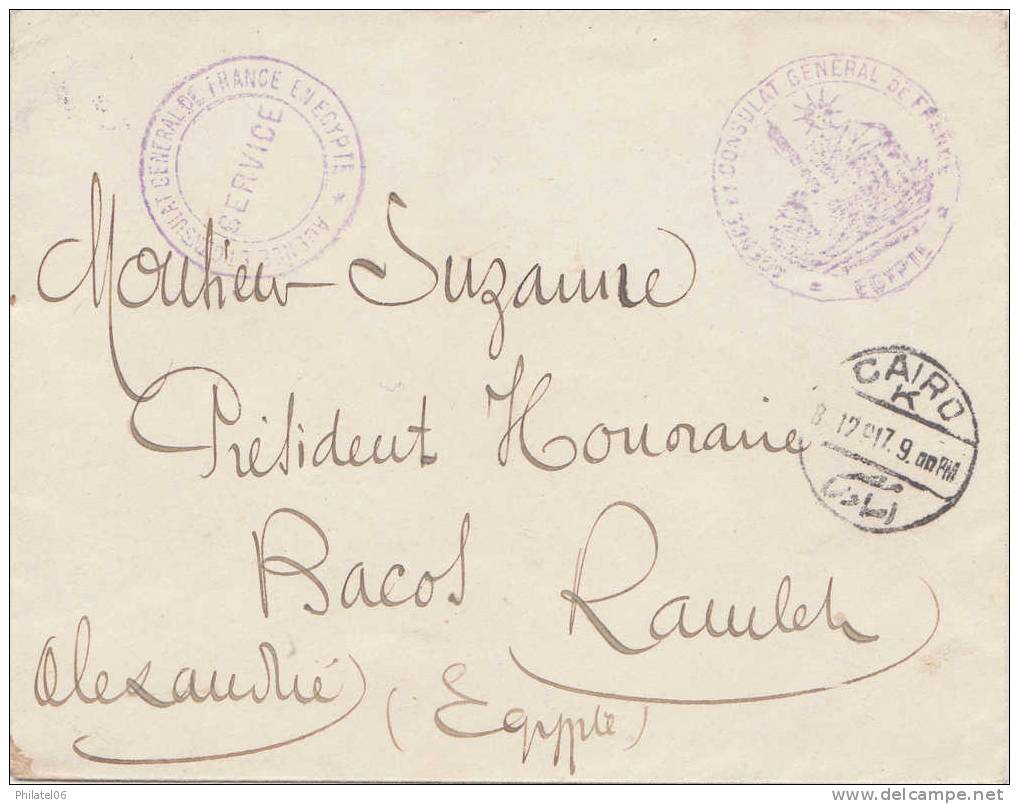 AGENCE ET CONSULAT GENERAL DE FRANCE EN EGYPTE
SERVICE
AGENCE ET CONSULAT GENERAL DE FRANCE
EGYPTE
Monsieur Suzanne
CAIRO
K
8.12.917.9.00PM
Président Honoraire
Bacos Ramleh
Alexandrie (Egypte)
Philatel06
www.delcampe.net